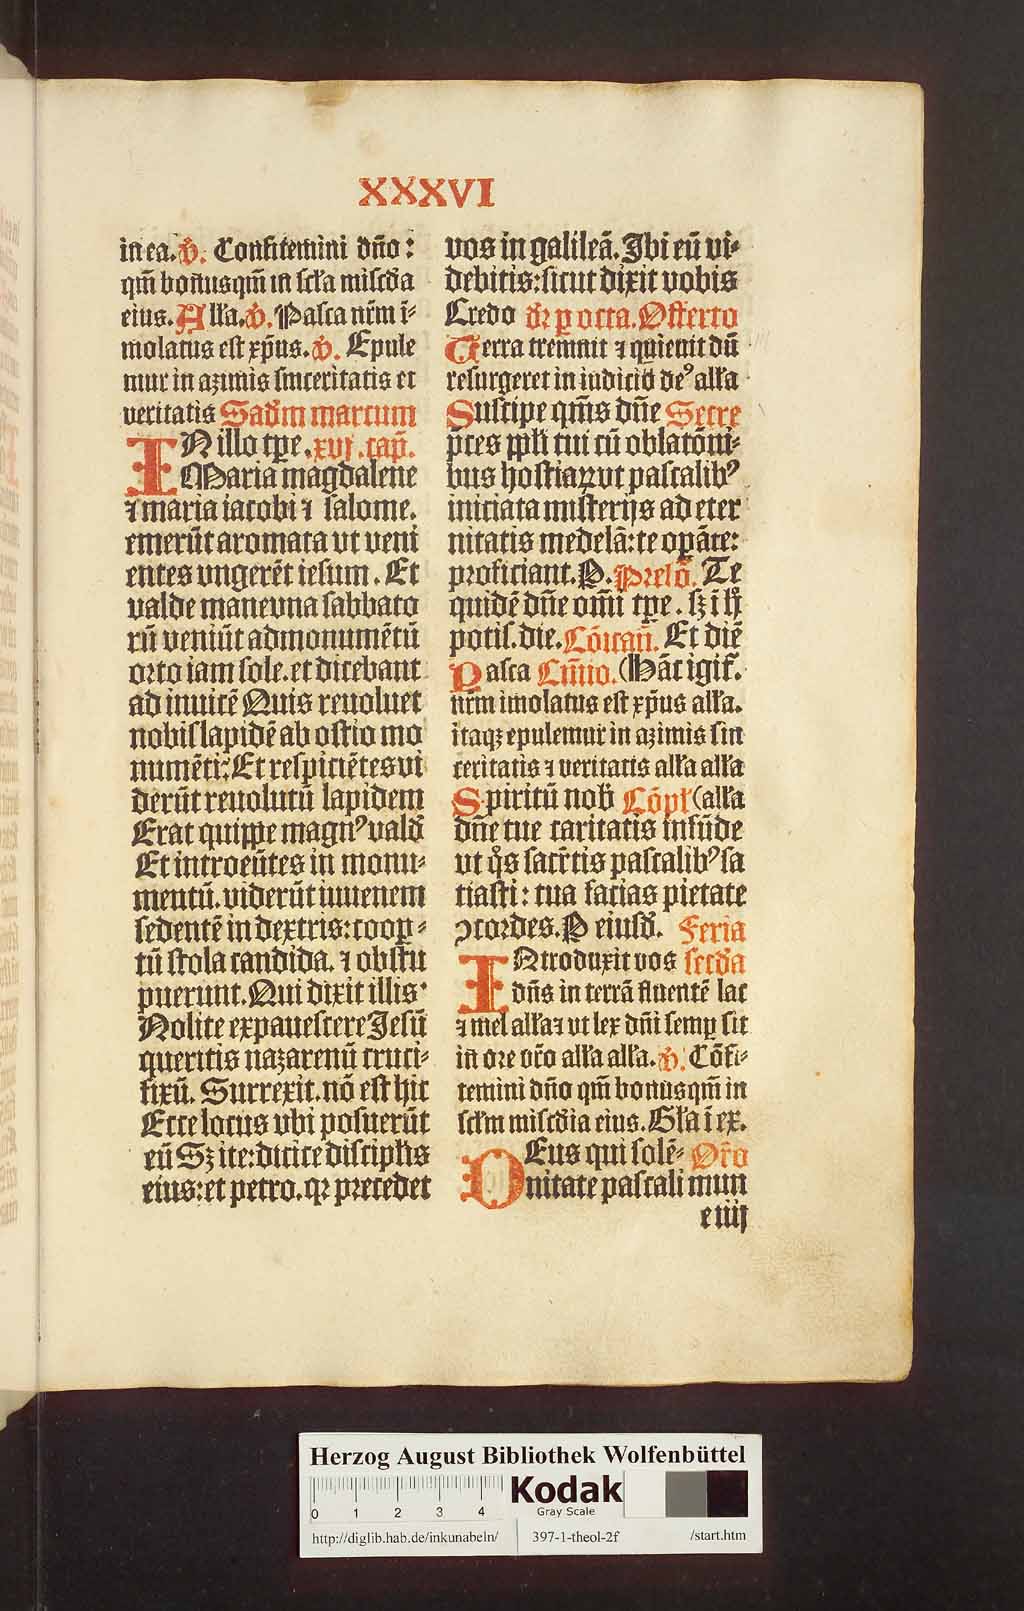 XXXVI
in ea. ꝟ. Confitemini dño:
qm̃ bonus qm̃ in scła miscđa
eius. Alła. ꝟ. Pasca nr̃m ĩ-
molatus est xp̃us. ꝟ. Epule
mur in azimis sinceritatis et
veritatis Sadm̃ marcum
IN illo tp̃e .xvj. cap̃.
Maria magdalene
⁊ maria iacobi ⁊ salome.
emerũt aromata vt veni
entes vngerẽt iesum. Et
valde mane vna sabbato
rũ veniũt ad monumẽtũ
orto iam sole. et dicebant
ad inuicẽ Quis reuoluet
nobis lapidẽ ab ostio mo
numẽti: Et respiciẽtes vi
derũt reuolutũ lapidem
Erat quippe magnꝰ vald̃
Et introeũtes in monu-
mentũ. viderũt iuuenem
sedentẽ in dextris: coop̱-
tũ stola candida. ⁊ obstu
puerunt. Qui dixit illis·
Nolite expauescere Jesũ
queritis nazarenũ cruci-
fixũ. Surrexit. nõ est hic
Ecce locus vbi posuerũt
eũ Sꝫ ite: dicite discipłis
eius: et petro. qꝛ precedet
vos in galileã. Jbi eũ vi-
debitis: sicut dixit vobis
Credo dꝛ ꝑ octa. Offerto
Terra tremuit ⁊ quieuit dũ
resurgeret in iudicio deꝰ alła
Suscipe qm̃s dñe Secre
p̃ces pp̃łi tui cũ oblatõni-
bus hostiaꝝ vt pascalibꝰ
iniciata misterijs ad eter
nitatis medelã: te oꝑãte:
proficiant. P. Prelõ. Te
quidẽ dñe om̃i tp̃e. sꝫ ĩ
potis. die. Cõicañ. Et diẽ
Pasca Cm̃io. (Hãc igiť.
nr̃m imolatus est xp̃us alła.
itaqꝫ epulemur in azimis sin
ceritatis ⁊ veritatis alła alła
Spiritũ nob̃ Cõpł (alła
dñe tue caritatis infũde
vt q̊s sacr̃tis pascalibꝰ sa
tiasti: tua facias pietate
ꝯcordes. P eiusđ. Feria
INtroduxit vos secđa
dñs in terrã fluentẽ lac
⁊ mel alła ⁊ vt lex dñi semꝑ sit
in ore vr̃o alła alła. ꝟ. Cõfi-
temini dño qm̃ bonus qm̃ in
scłm miscđia eius. Gła ĩ ex.
DEus qui solẽ- Or̃o
nitate pascali mun
e iiij
Herzog August Bibliothek Wolfenbüttel
0 1 2 3 4
Kodak
Gray Scale
http://diglib.hab.de/inkunabeln/ 397-1-theol-2f /start.htm